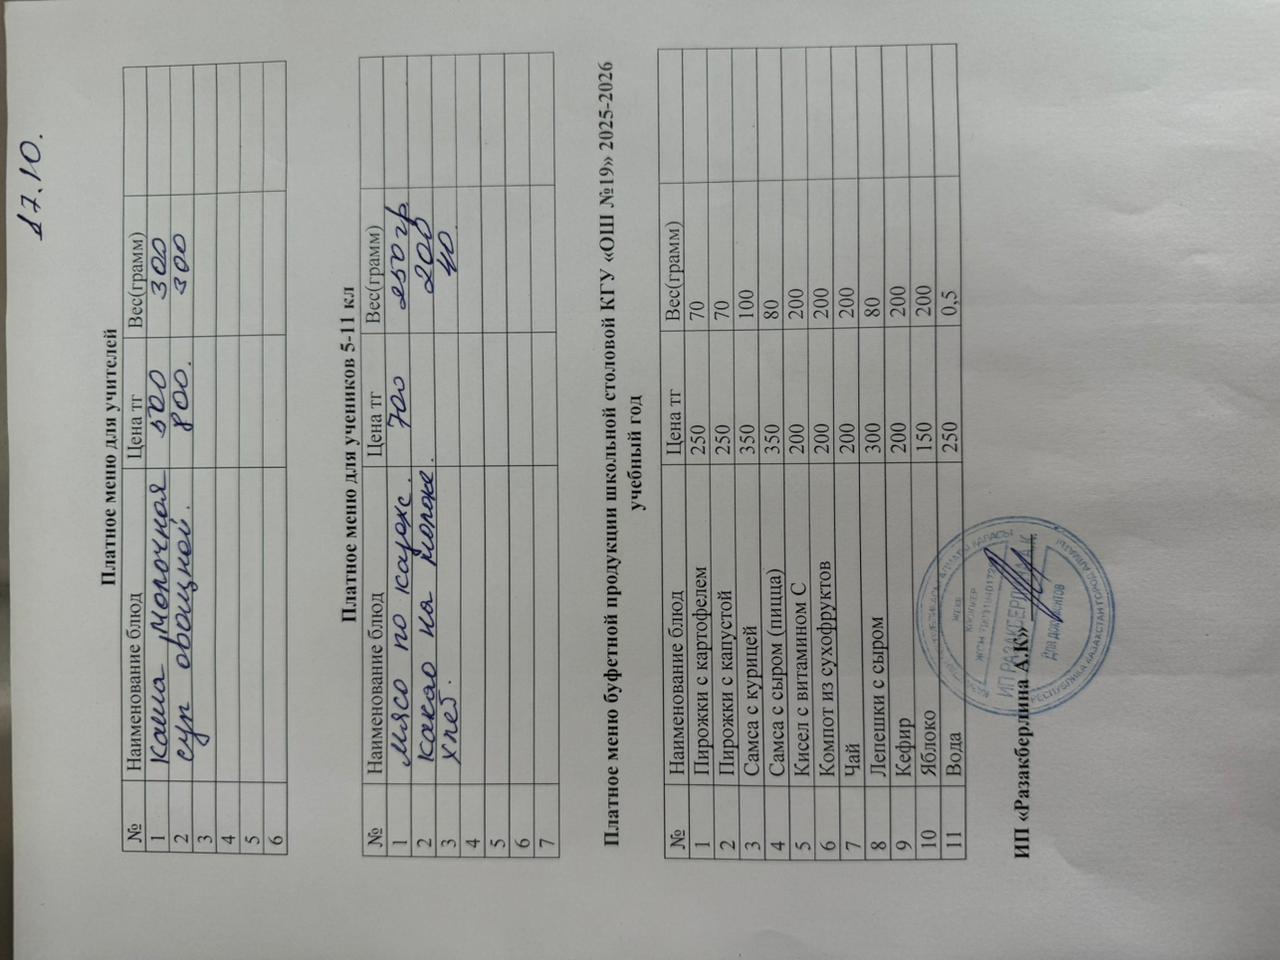 17.10.
Платное меню для учителей
№ Наименование блюд Цена тг Вес(грамм)
1 Каша Молочная 500 300
2 суп овощной. 800. 300
3
4
5
6
Платное меню для учеников 5-11 кл
№ Наименование блюд Цена тг Вес(грамм)
1 мясо по 700 250 гр
2 Какао на молоке. 200
3 хлеб. 40
4
5
6
7
Платное меню буфетной продукции школьной столовой КГУ «ОШ №19» 2025-2026
учебный год
№ Наименование блюд Цена тг Вес(грамм)
1 Пирожки с картофелем 250 70
2 Пирожки с капустой 250 70
3 Самса с курицей 350 100
4 Самса с сыром (пицца) 350 80
5 Кисел с витамином С 200 200
6 Компот из сухофруктов 200 200
7 Чай 200 200
8 Лепешки с сыром 300 80
9 Кефир 200 200
10 Яблоко 150 200
11 Вода 250 0,5
ИП «Разакберлина А.К»
ИП РАЗАКБЕРЛИНА А.К.
Для документов
РЕСПУБЛИКА КАЗАХСТАН ГОРОД АЛМАТЫ